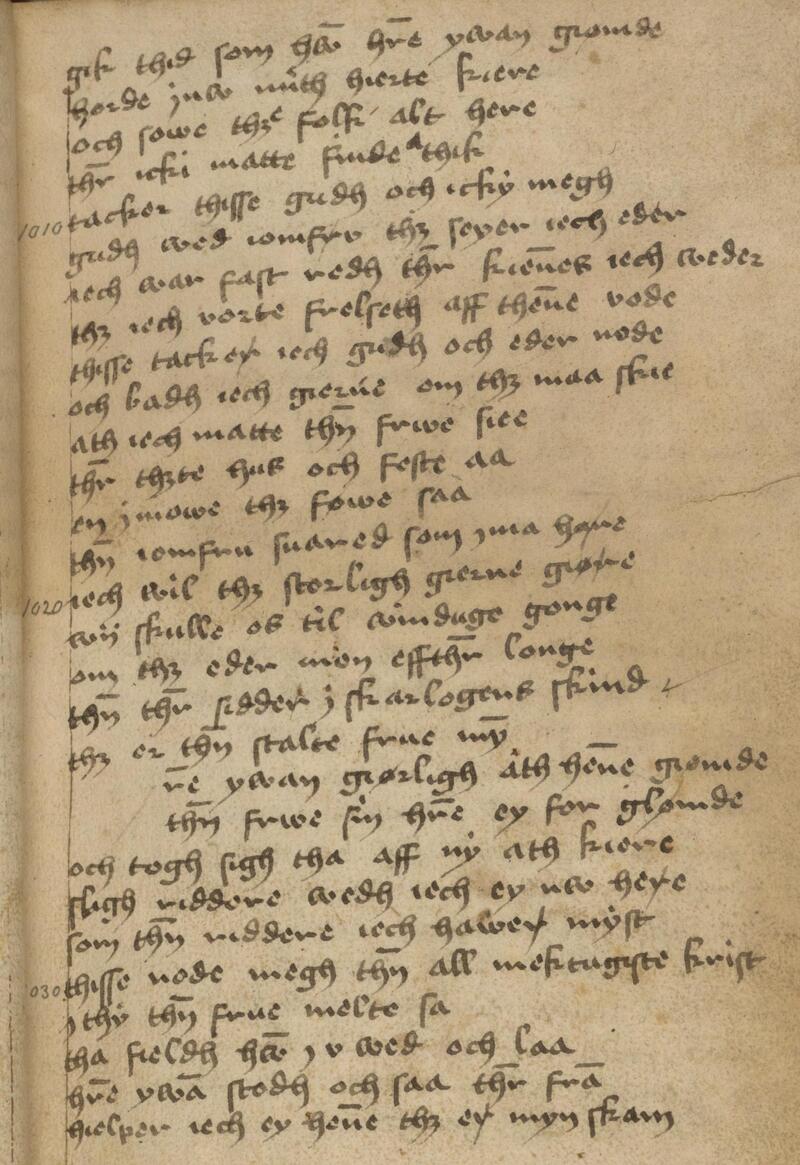 gik thid som hw̄ hr̄e ywan giømde
hørde jnw mith hierte kiere
och sowe thꝫe folk alt here
thr̄ icki matte finde thik
1010 tacker thisse gudh och icky megh
gudh wed iomfrv thꝫ seyer iech eder
iech war fast redh thr̄ kien̄es iech weder
thꝫ iech vorte frelseth aff then̄e vode
thisse tacker iech gudh och eder node
och badh iech gierne om thꝫ maa skie
ath iech matte thn̄ frwe siee
thr̄ thꝫte hus och feste aa
en j mowe thꝫ fowe saa
thn̄ iomfru suared som jma høre
1020 iech wil thꝫ storligh gierne giøre
wij skulle os til winduge gonge
om thꝫ eder mon effthr̄ longe
thn̄ thr̄ sidder j skarlogens skind
thꝫ er thn̄ stalte frue mȳ
r̄e ywan giørligh ath hen̄e giømde
thn̄ frwe sin hr̄e ey for glømde
och togh sigh tha aff ny ath kiere
sligh riddere wedh iech ey nw here
som thn̄ riddere iech hawer myst
030 thisse node megh thn̄ all mektugiste krist
j thy thn̄ frue melte sa
tha fieldh hw̄ j v wed och laa
hr̄e ywā stodh och saa thr̄ frā
hielper iech ey hen̄e thꝫ er myn skam